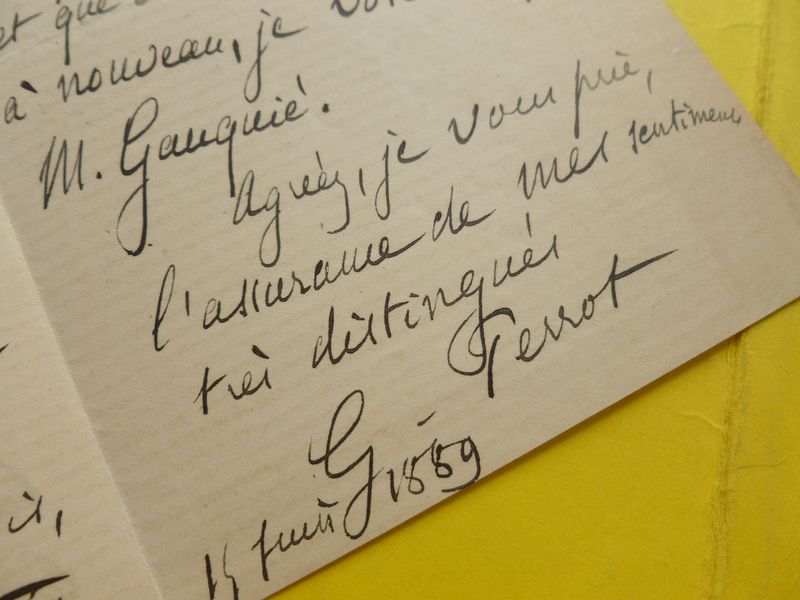 et que
à nouveau, je
M. Gauquié.
Agréez, je vous prie,
l'assurance de mes sentiments
très distingués
G Perrot
Juin 1889